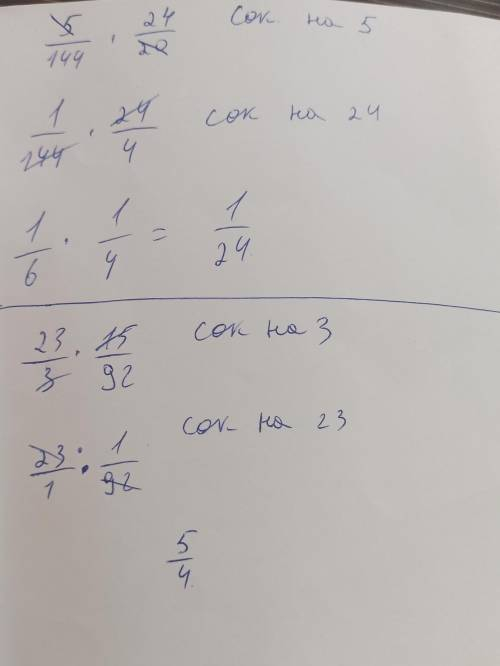 5/144 · 24/20 сок. на 5
1/144 · 24/4 сок на 24
1/6 · 1/4 = 1/24
23/3 · 15/92 сок на 3
23/1 · 1/92 сок на 23
5/4